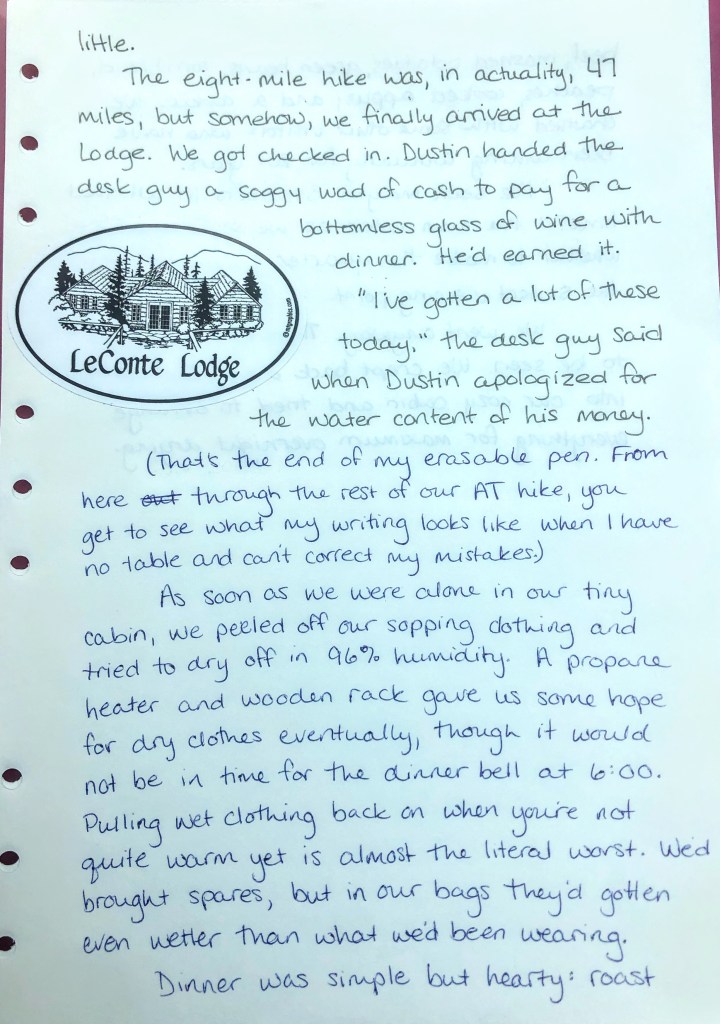 little.
The eight-mile hike was, in actuality, 47
miles, but somehow, we finally arrived at the
Lodge. We got checked in. Dustin handed the
desk guy a soggy wad of cash to pay for a
bottomless glass of wine with
dinner. He'd earned it.
"I've gotten a lot of these
today," the desk guy said
when Dustin apologized for
the water content of his money.
LeConte Lodge
(That's the end of my erasable pen. From
here out through the rest of our AT hike, you
get to see what my writing looks like when I have
no table and can't correct my mistakes.)
As soon as we were alone in our tiny
cabin, we peeled off our sopping clothing and
tried to dry off in 96% humidity. A propane
heater and wooden rack gave us some hope
for dry clothes eventually, though it would
not be in time for the dinner bell at 6:00.
Pulling wet clothing back on when you're not
quite warm yet is almost the literal worst. We'd
brought spares, but in our bags they'd gotten
even wetter than what we'd been wearing.
Dinner was simple but hearty: roast